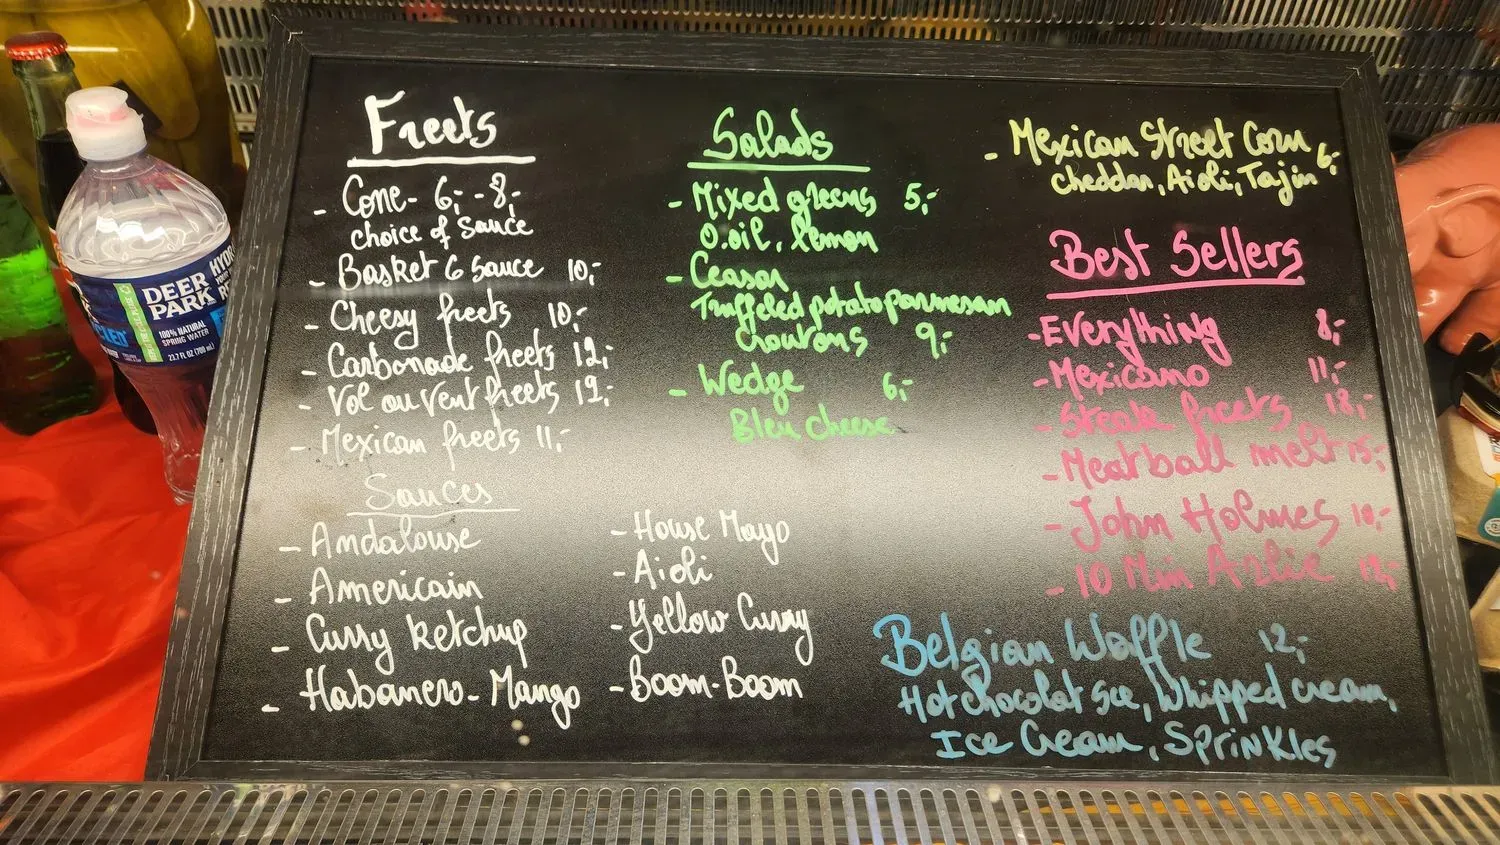 Freets
- Cone - 6,- - 8,-
choice of sauce
- Basket & sauce 10,-
- Cheesy freets 10,-
- Carbonade freets 12,-
- Vol au Vent freets 12,-
- Mexican freets 11,-
Sauces
- Andalouse
- Americain
- Curry Ketchup
- Habanero - Mango
- House Mayo
- Aioli
- Yellow Curry
- Boom-Boom
Salads
- Mixed greens 5,-
O.oil, lemon
- Ceasar
Truffeled potato parmesan
croutons 9,-
- Wedge 6,-
Bleu cheese
- Mexican Street Corn
cheddar, Aioli, Tajin 6,-
Best Sellers
- Everything 8,-
- Mexicano 11,-
- Steak freets 18,-
- Meatball melt 15,-
- John Holmes
- 10 Min Arlie
Belgian Waffle 12,-
Hot chocolat sce, Whipped cream,
Ice Cream, Sprinkles
DEER
PARK
100% NATURAL
SPRING WATER
23.7 FL OZ (700 mL)